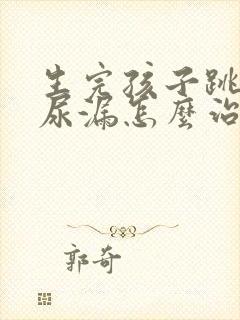 生完孩子跳
尿漏怎麼治
郭奇